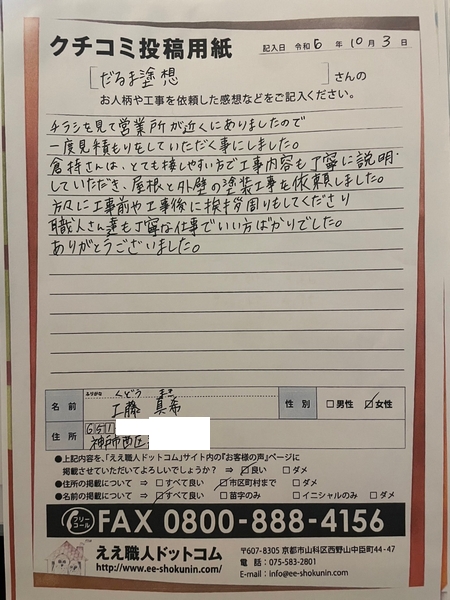 クチコミ投稿用紙
記入日 令和 6 年 10 月 3 日
[だるま塗想]さんの
お人柄や工事を依頼した感想などをご記入ください。
チラシを見て営業所が近くにありましたので
一度見積もりをしていただく事にしました。
倉持さんは、とても接しやすい方で工事内容も丁寧に説明
していただき、屋根と外壁の塗装工事を依頼しました。
方々に工事前や工事後に挨拶周りもしてくださり
職人さん達も丁寧な仕事でいい方ばかりでした。
ありがとうございました。
ふりがな くどう まき
名前 工藤 真希 性別 □男性 ☑女性
住所 651
神戸市西区
●上記内容を、「ええ職人ドットコム」サイト内の『お客様の声』ページに
掲載させていただいてよろしいでしょうか? ⇒ ☑良い □ダメ
●住所の掲載について ⇒ □すべて良い ☑市区町村まで □ダメ
●名前の掲載について ⇒ ☑すべて良い □苗字のみ □イニシャルのみ □ダメ
フリーコール FAX 0800-888-4156
ええ職人ドットコム
http://www.ee-shokunin.com/
〒607-8305 京都市山科区西野山中臣町44-47
電話：075-583-2801
E-mail：info@ee-shokunin.com